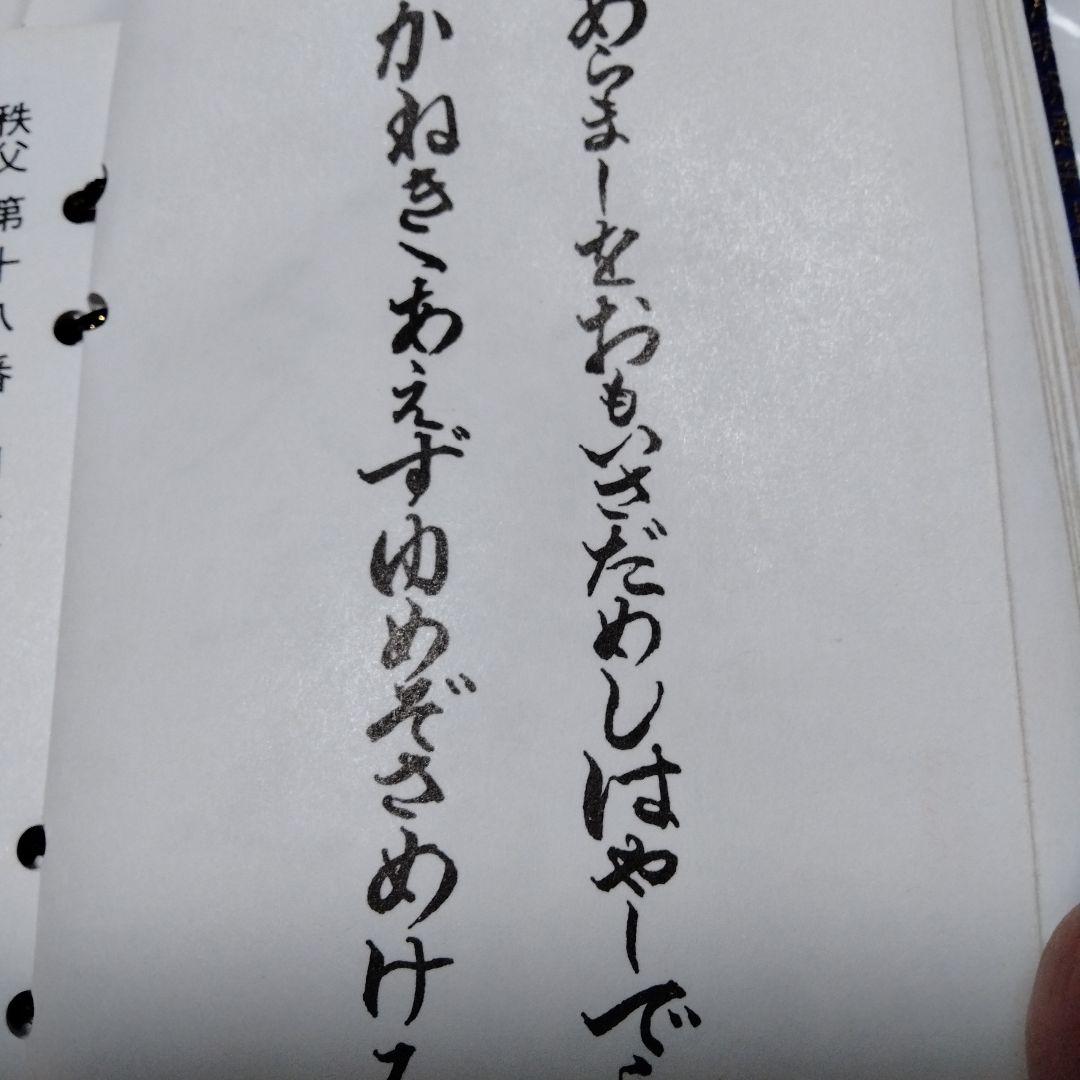 あらましをおもいさだめしはやしで
かねきゝあえずゆめぞさめける
秩父第十八番